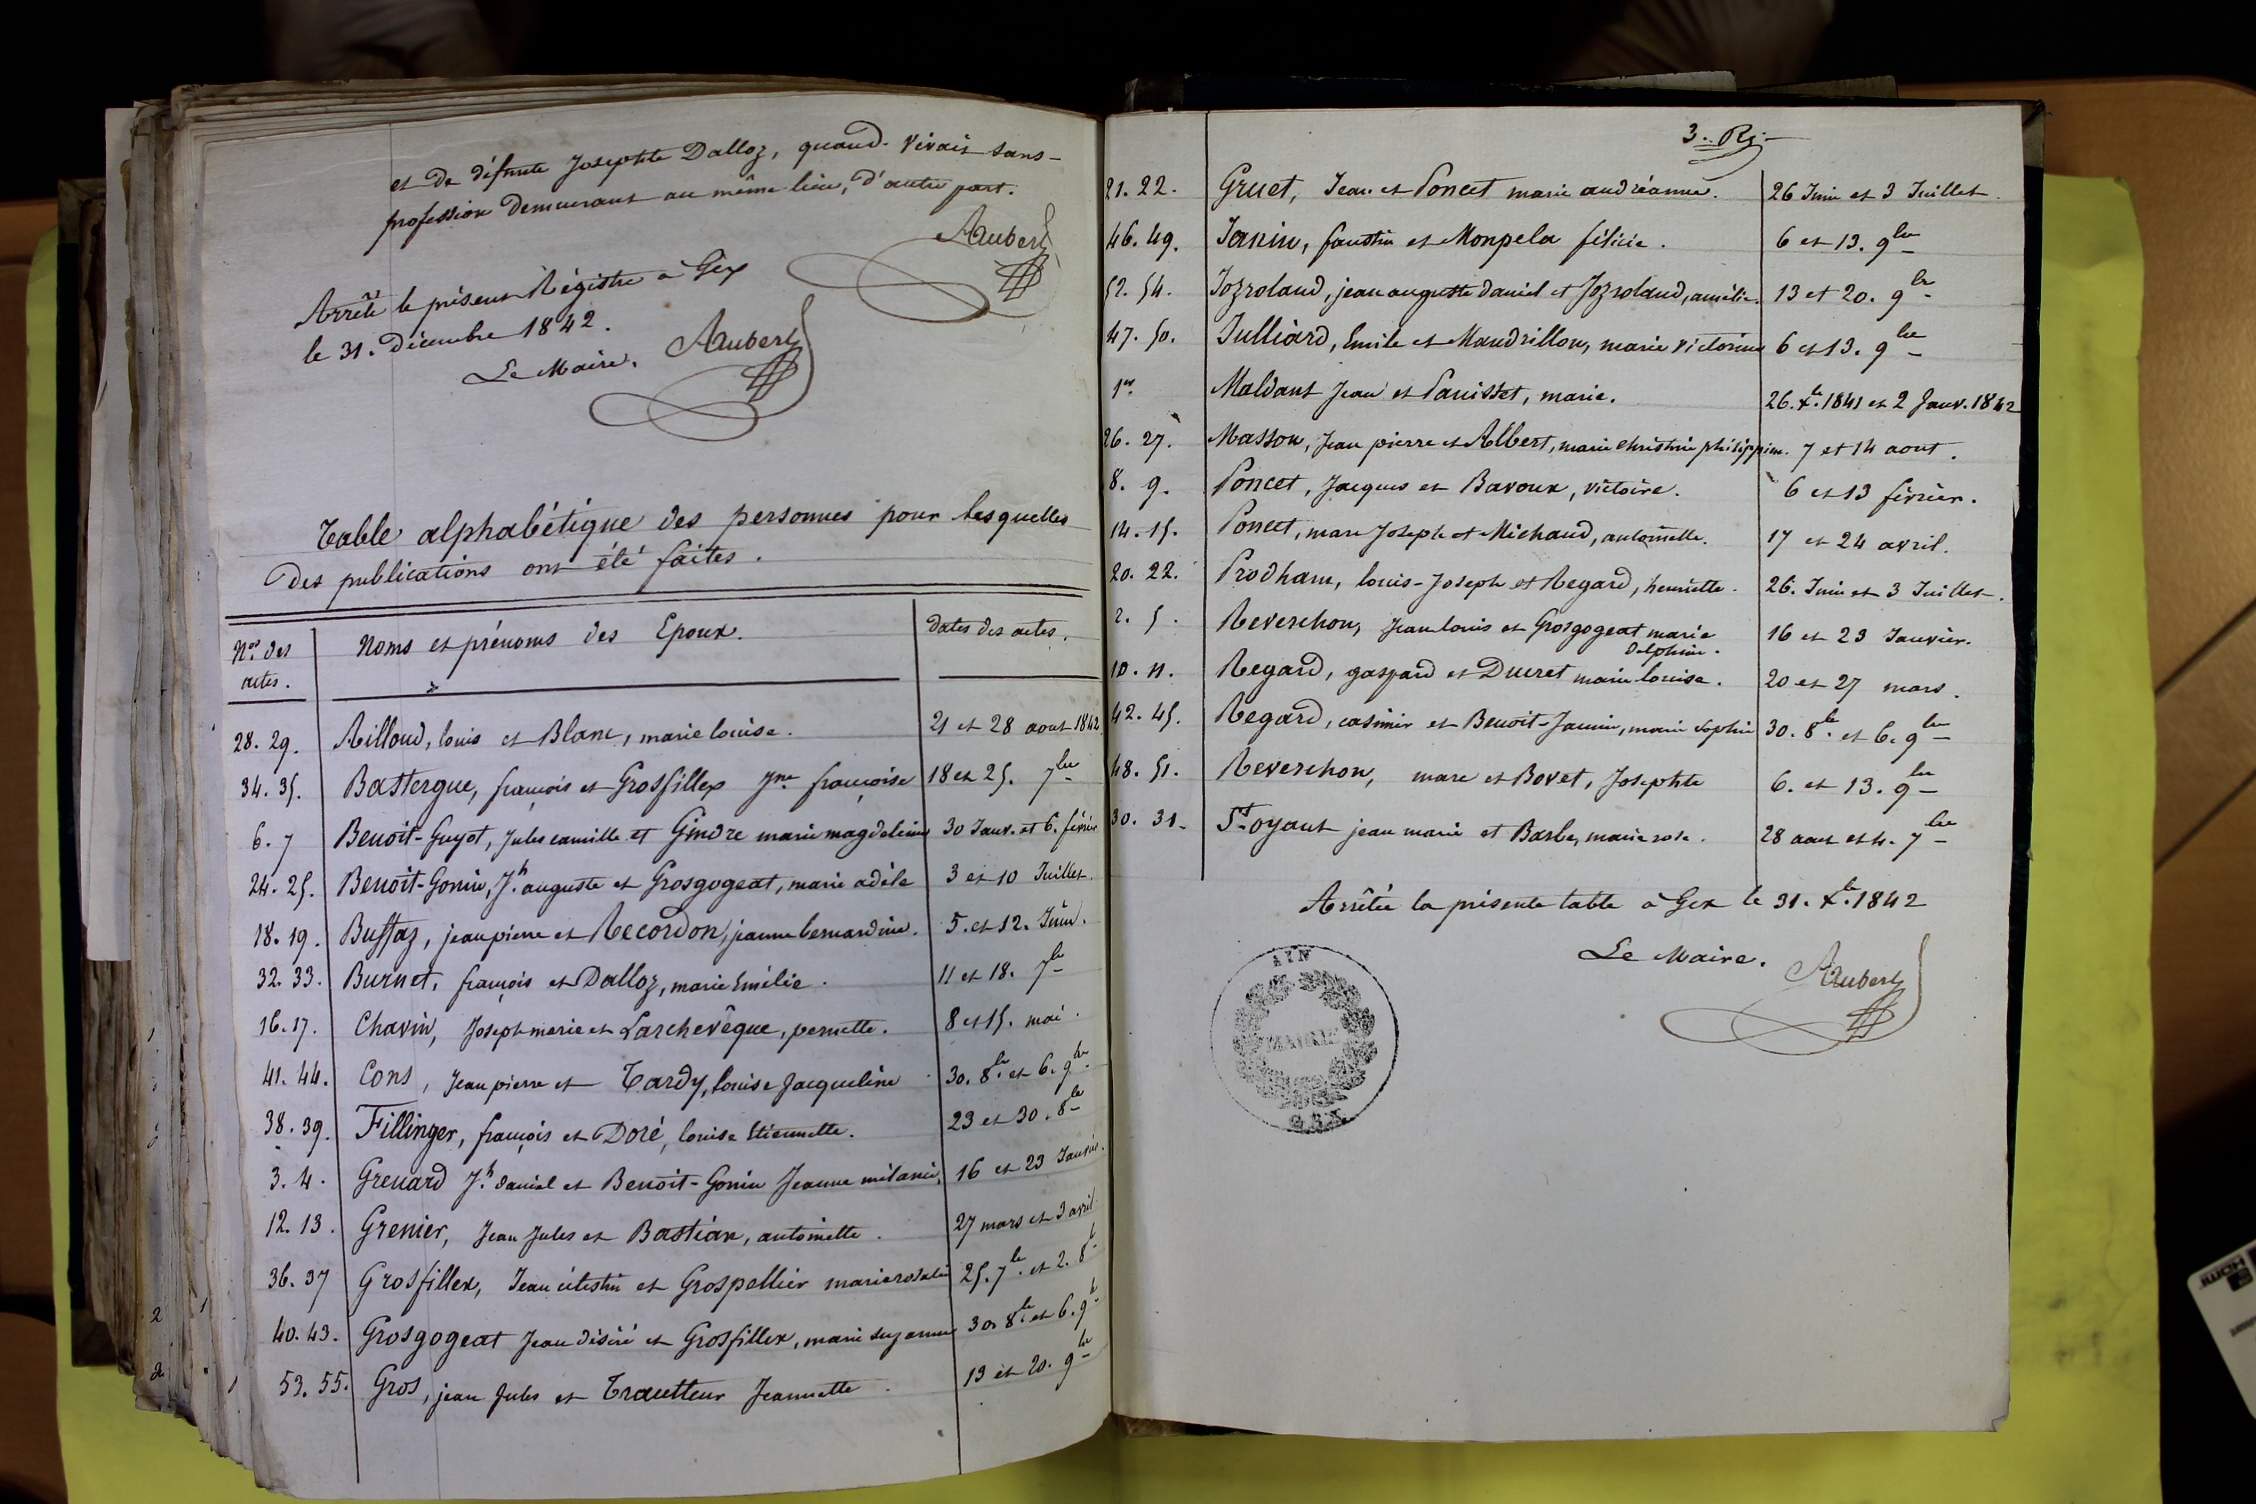 et de défunte Josephte Dalloz, quand vivait sans
profession demeurant au même lieu, d'autre part.
Aubert
Arrêté le présent Régistre à Gex
le 31. Décembre 1842.
Le Maire. Aubert
Table alphabétique des personnes pour lesquelles
des publications ont été faites.
Nos des actes. Noms et prénoms des Epoux. Dates des actes.
28. 29. Ailloud, louis et Blanc, marie louise. 21 et 28 aout 1842
34. 35. Bastergue, françois et Grosfillex Jne françoise 18 et 25. 7bre
6. 7 Benoit-Guyot, Jules camille et Gindre marie magdeleine 30 Janv. et 6. février
24. 25. Benoit-Gonin, Jh. auguste et Grosgogeat, marie adèle 3 et 10 Juillet.
18. 19. Buffaz, jean pierre et Recordon, jeanne bernardine. 5. et 12. Juin.
32. 33. Burnet, françois et Dalloz, marie Emélie. 11 et 18. 7bre
16. 17. Chavin, Joseph marie et Larchevêque, pernette. 8 et 15. mai.
41. 44. Cons, Jean pierre et Tardy, louise Jacqueline 30. 8bre et 6. 9bre
38. 39. Fillinger, françois et Doré, louise Etiennette. 23 et 30. 8bre
3. 4. Grenard Jh. daniel et Benoit-Gonin Jeanne mélanie, 16 et 23 Janvier.
12. 13. Grenier, Jean Jules et Bastian, antoinette. 27 mars et 3 avril
36. 37 Grosfillex, Jean célestin et Grospellier marie rosalie 25. 7bre et 2. 8bre
40. 43. Grosgogeat Jean désiré et Grosfillex, marie suzanne 30. 8bre et 6. 9bre
53. 55. Gros, jean Jules et Trautteur Jeannette. 13 et 20. 9bre
3. Rj.
21. 22. Gruet, Jean et Poncet marie andréanne. 26 Juin et 3 Juillet.
46. 49. Janin, faustin et Monpela félicie. 6 et 13. 9bre
52. 54. Jozroland, jean auguste daniel et Jozroland, amélie. 13 et 20. 9bre
47. 50. Julliard, Emile et Mandrillon, marie victorine 6 et 13. 9bre
1er. Maldant Jean et Panisset, marie. 26. Xbre. 1841 et 2 Janv. 1842
26. 27. Masson, Jean pierre et Albert, marie christine philippine. 7 et 14 aout.
8. 9. Poncet, Jacques et Bavoux, victoire. 6 et 13 février.
14. 15. Poncet, marc Joseph et Michaud, antoinette. 17 et 24 avril.
20. 22. Prodham, louis-Joseph et Regard, henriette. 26. Juin et 3 Juillet.
2. 5. Reverchon, Jean louis et Grosgogeat marie delphine. 16 et 23 Janvier.
10. 11. Regard, gaspard et Ducret marie louise. 20 et 27 mars.
42. 45. Regard, casimir et Benoit-Jannin, marie sophie 30. 8bre. et 6. 9bre
48. 51. Reverchon, marc et Bovet, Josephte 6. et 13. 9bre
30. 31. St oyant jean marie et Barbe, marie rose. 28 aout et 4. 7bre
Arrêtée la présente table à Gex le 31. Xbre. 1842
Le Maire. Aubert
AIN
MAIRIE
GEX